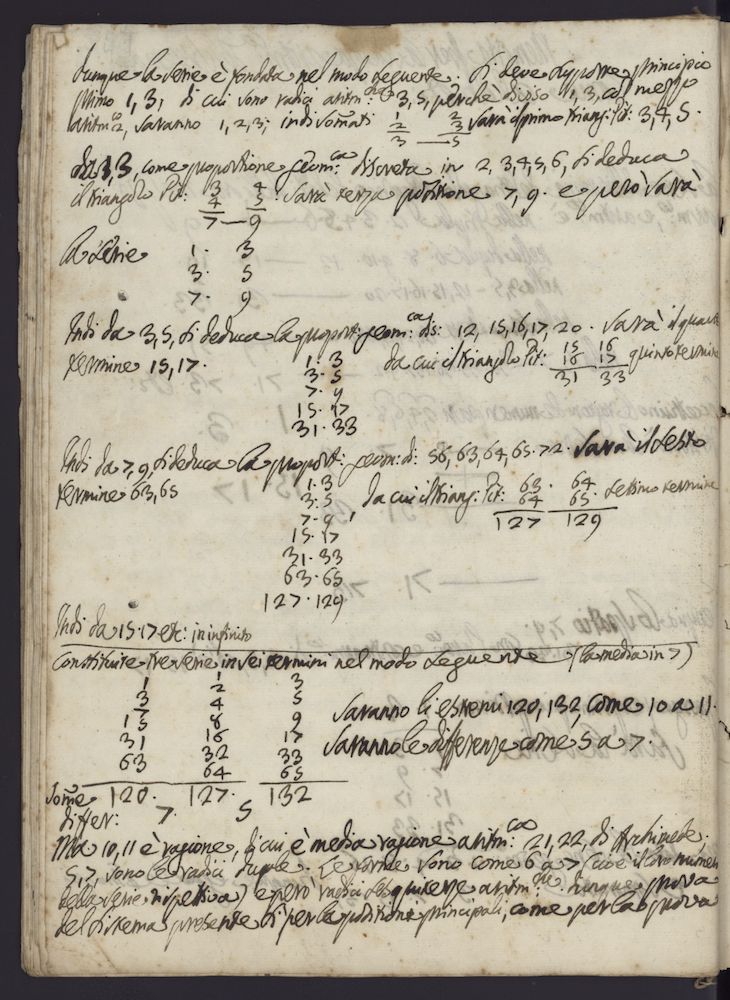 dunque la serie è fondata nel modo seguente. Si deve supporre principio
primo 1, 3, di cui sono radici aritm:che 3, 5, perchè diviso 1, 3, col mezzo
aritmco 2, saranno 1, 2, 3; indi somati 1 2 sarà il primo triang: Pit: 3, 4, 5.
2 3
3 — 5
Da 1, 3, come proporzione geom:ca discreta in 2, 3, 4, 5, 6, si deduca
il triangolo Pit: 3 4 . Sarà terza posizione 7, 9. e però sarà
4 5
7 — 9
la serie 1. 3
3. 5
7. 9
Indi da 3, 5, si deduca la proport: geom:ca dis: 12, 15, 16, 17, 20. Sarà il quarto
termine 15, 17. da cui il triangolo Pit: 15 16 quinto termine
16 17
31 33
1. 3
3. 5
7. 9
15. 17
31. 33
Indi da 7, 9, si deduca la proport: geom: d: 56, 63, 64, 65. 72. Sarà il sesto
termine 63, 65 da cui il triang: Pit: 63. 64 settimo termine
64 65.
127 129
1. 3
3. 5
7. 9
15. 17
31. 33
63. 65
127. 129
Indi da 15. 17 etc: in infinito
Constituite tre serie in sei termini nel modo seguente (la media in 7)
1 2 3
3 4 5
8 9
15 16 17
31 32 33
63 64 65
Some 120. 127. 132
differ: 7. 5
Saranno li estremi 120, 132, come 10 a 11.
Saranno le differenze come 5 a 7.
Ma 10, 11 è ragione, di cui è media ragione aritm:ca 21, 22, di Archimede.
5, 7, sono le radici duple. Le forme sono come 6 a 7 (cioè il loro numero
della serie rispettiva) e però radici aritm:che. Dunque prova
del sistema presente si per le posizioni principali, come per la prova